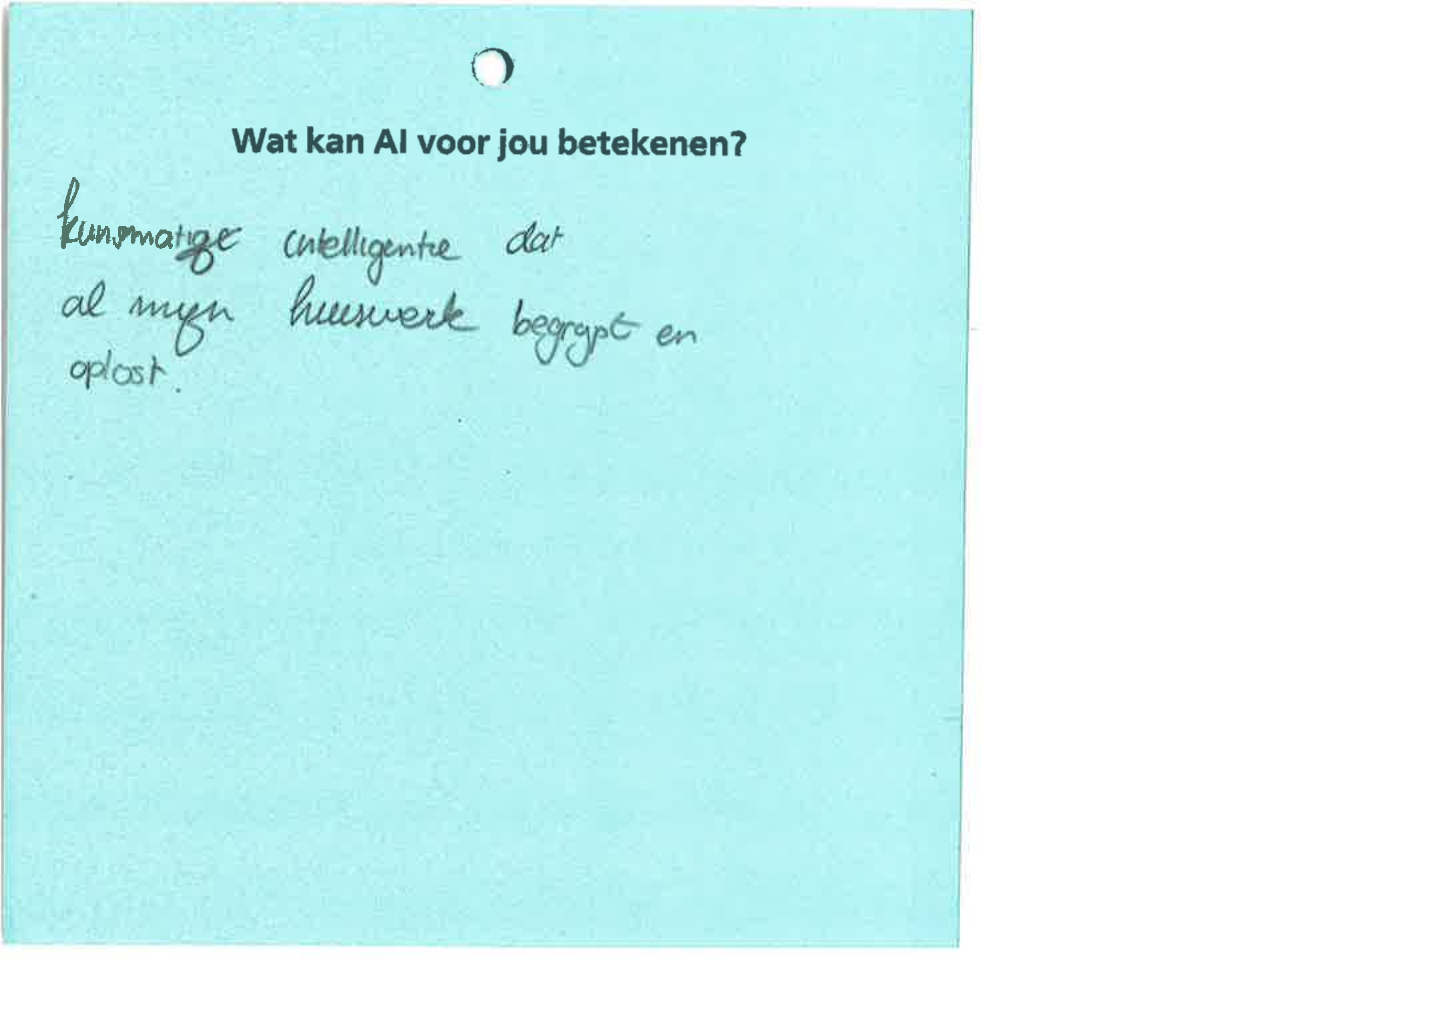 Wat kan AI voor jou betekenen?
kunsmatige intelligentie dat
al mijn huiswerk begrijpt en
oplost.